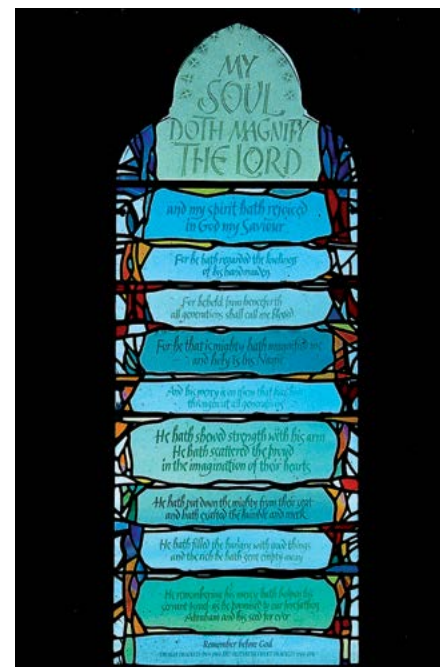 MY
SOUL
DOTH MAGNIFY
THE LORD
and my spirit hath rejoiced
in God my Saviour
For he hath regarded the lowliness
of his handmaiden
For behold from henceforth
all generations shall call me blessed
For he that is mighty hath magnified me
and holy is his Name
And his mercy is on them that fear him
throughout all generations
He hath shewed strength with his arm
He hath scattered the proud
in the imagination of their hearts
He hath put down the mighty from their seat
and hath exalted the humble and meek
He hath filled the hungry with good things
and the rich he hath sent empty away
He remembering his mercy hath holpen his
servant Israel as he promised to our forefathers
Abraham and his seed for ever
Remember before God